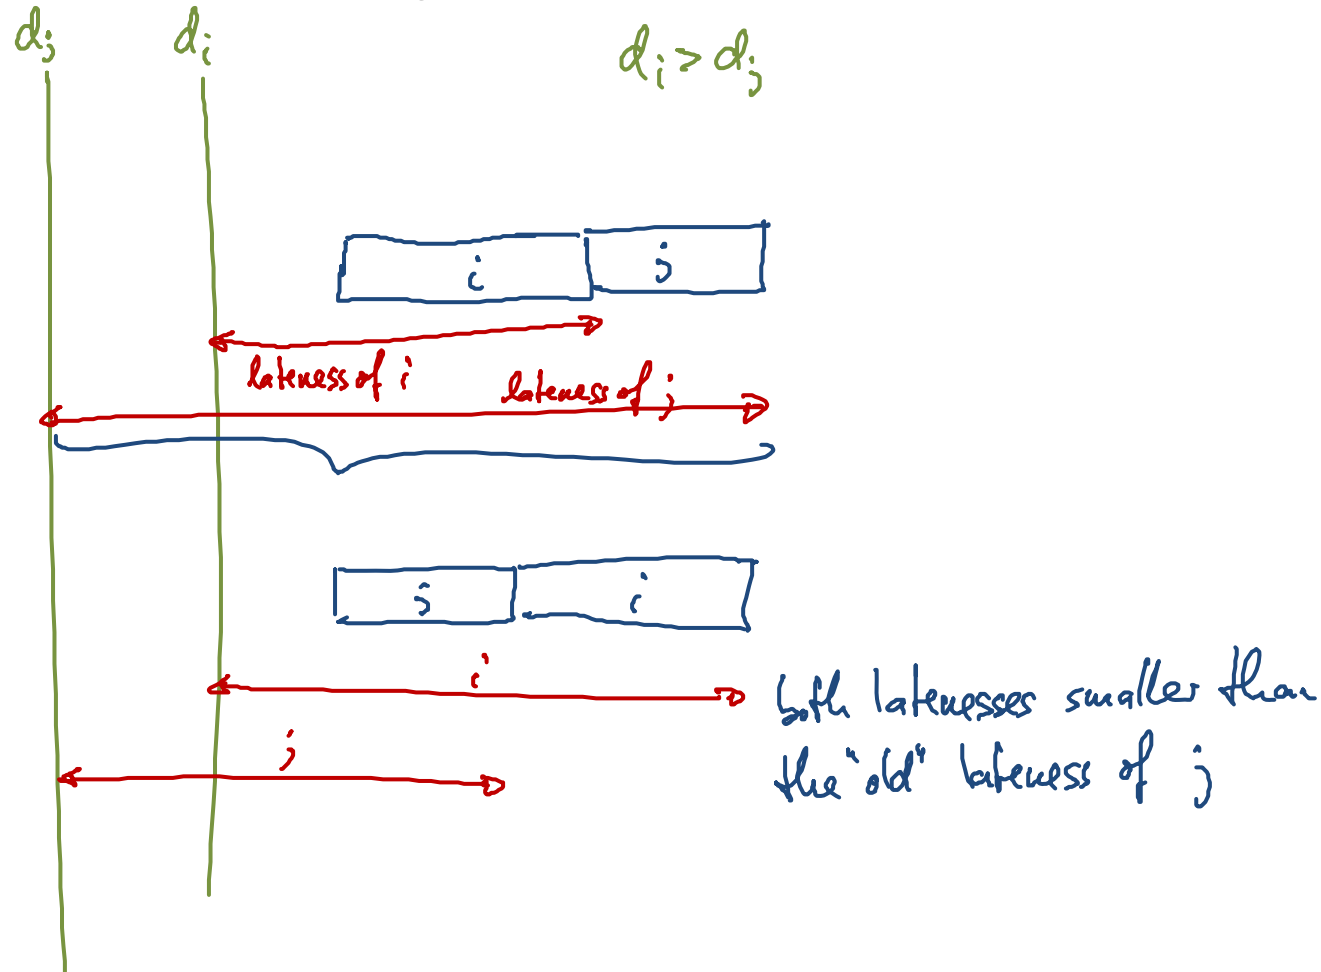 dj di di > dj
i j
lateness of i
lateness of j
j i
i
both latenesses smaller than
j
the "old" lateness of j